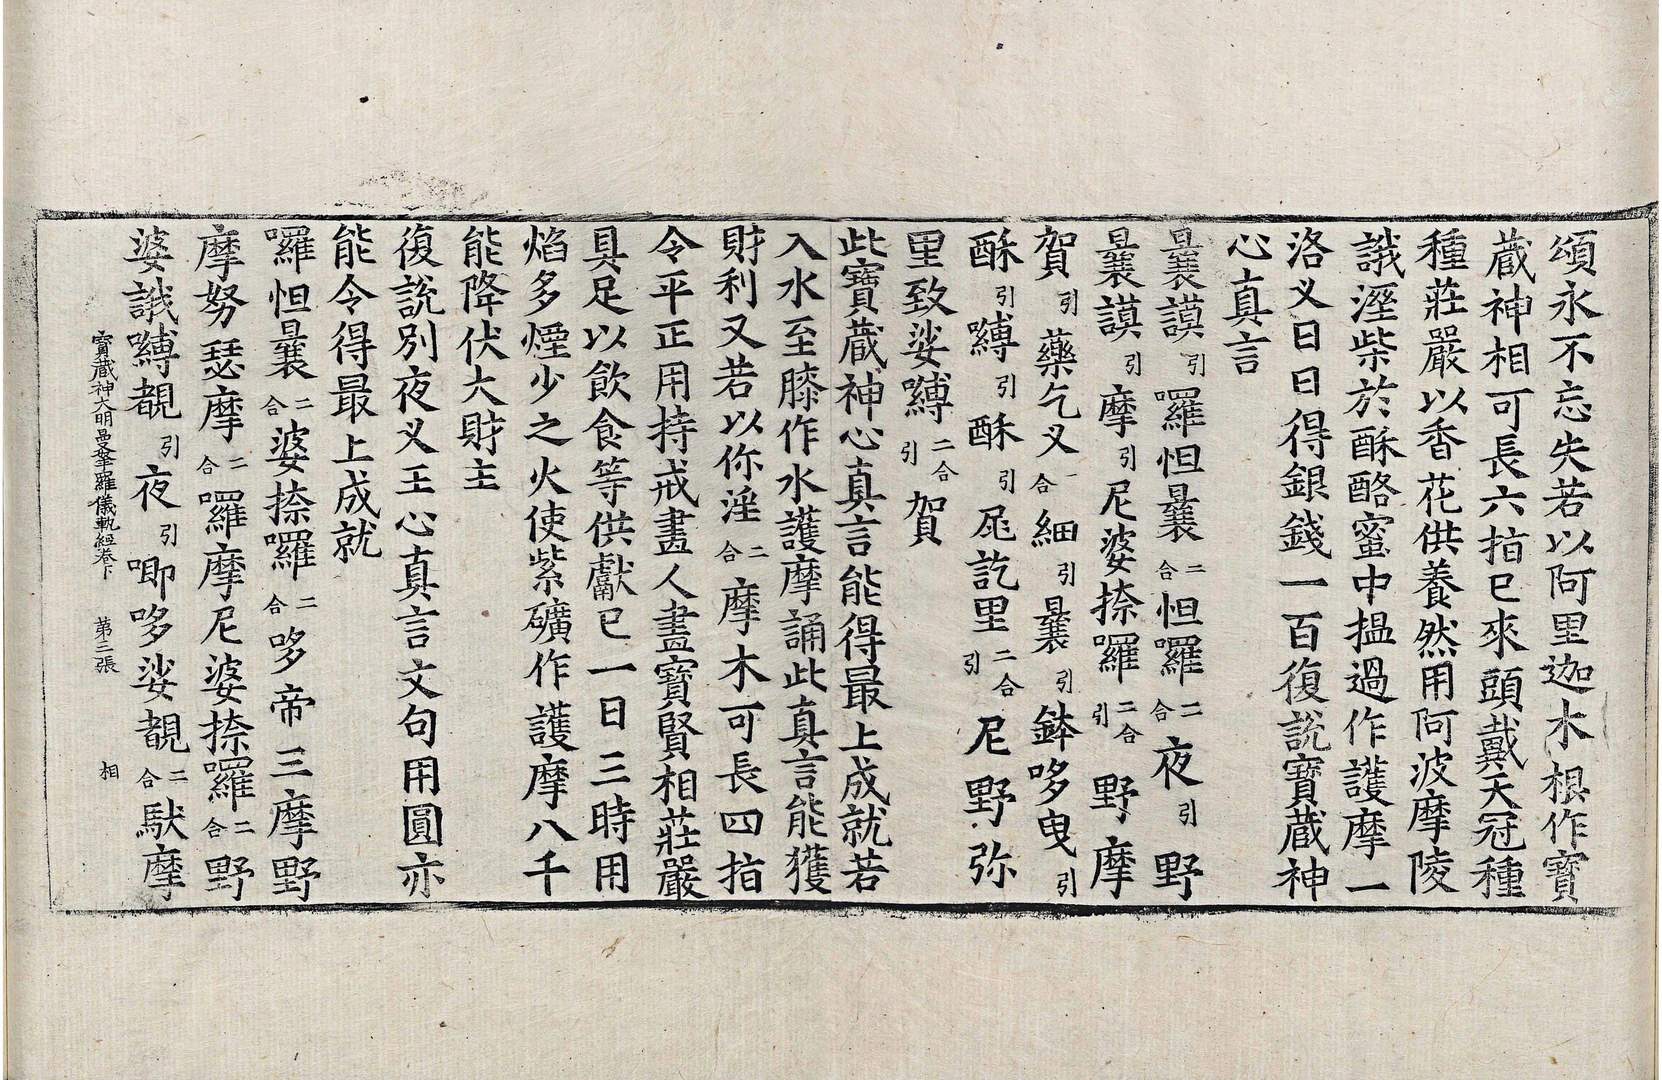 頌永不忘失若以阿里迦木根作寶
蔵神相可長六指已來頭戴天冠種
種莊嚴以香花供養然用阿波摩陵
誐溼柴於酥酪蜜中揾過作護摩一
洛义日日得銀錢一百復説寶蔵神
心真言
曩謨引囉怛曩二合怛囉二合夜引野
曩謨引摩引尼婆捺囉二合引野摩
賀引藥乞义二合細引曩引鉢哆曳引
酥引嚩引酥引屈訖里二合引尼野弥
里致娑嚩二合引賀
此寶蔵神心真言能得最上成就若
入水至膝作水護摩誦此真言能獲
財利又若以你淫二合摩木可長四指
令平正用持戒畫人畫寶賢相莊嚴
具足以飲食等供獻已一日三時用
焰多煙少之火使紫礦作護摩八千
能降伏大財主
復説別夜义王心真言文句用圓亦
能令得最上成就
囉怛曩二合婆捺囉二合哆帝三摩野
摩努瑟摩二合囉摩尼婆捺囉二合野
婆誐嚩覩引夜引唧哆娑覩二合馱摩
寶蔵神大明曼拏羅儀軌經卷下 第三張 相